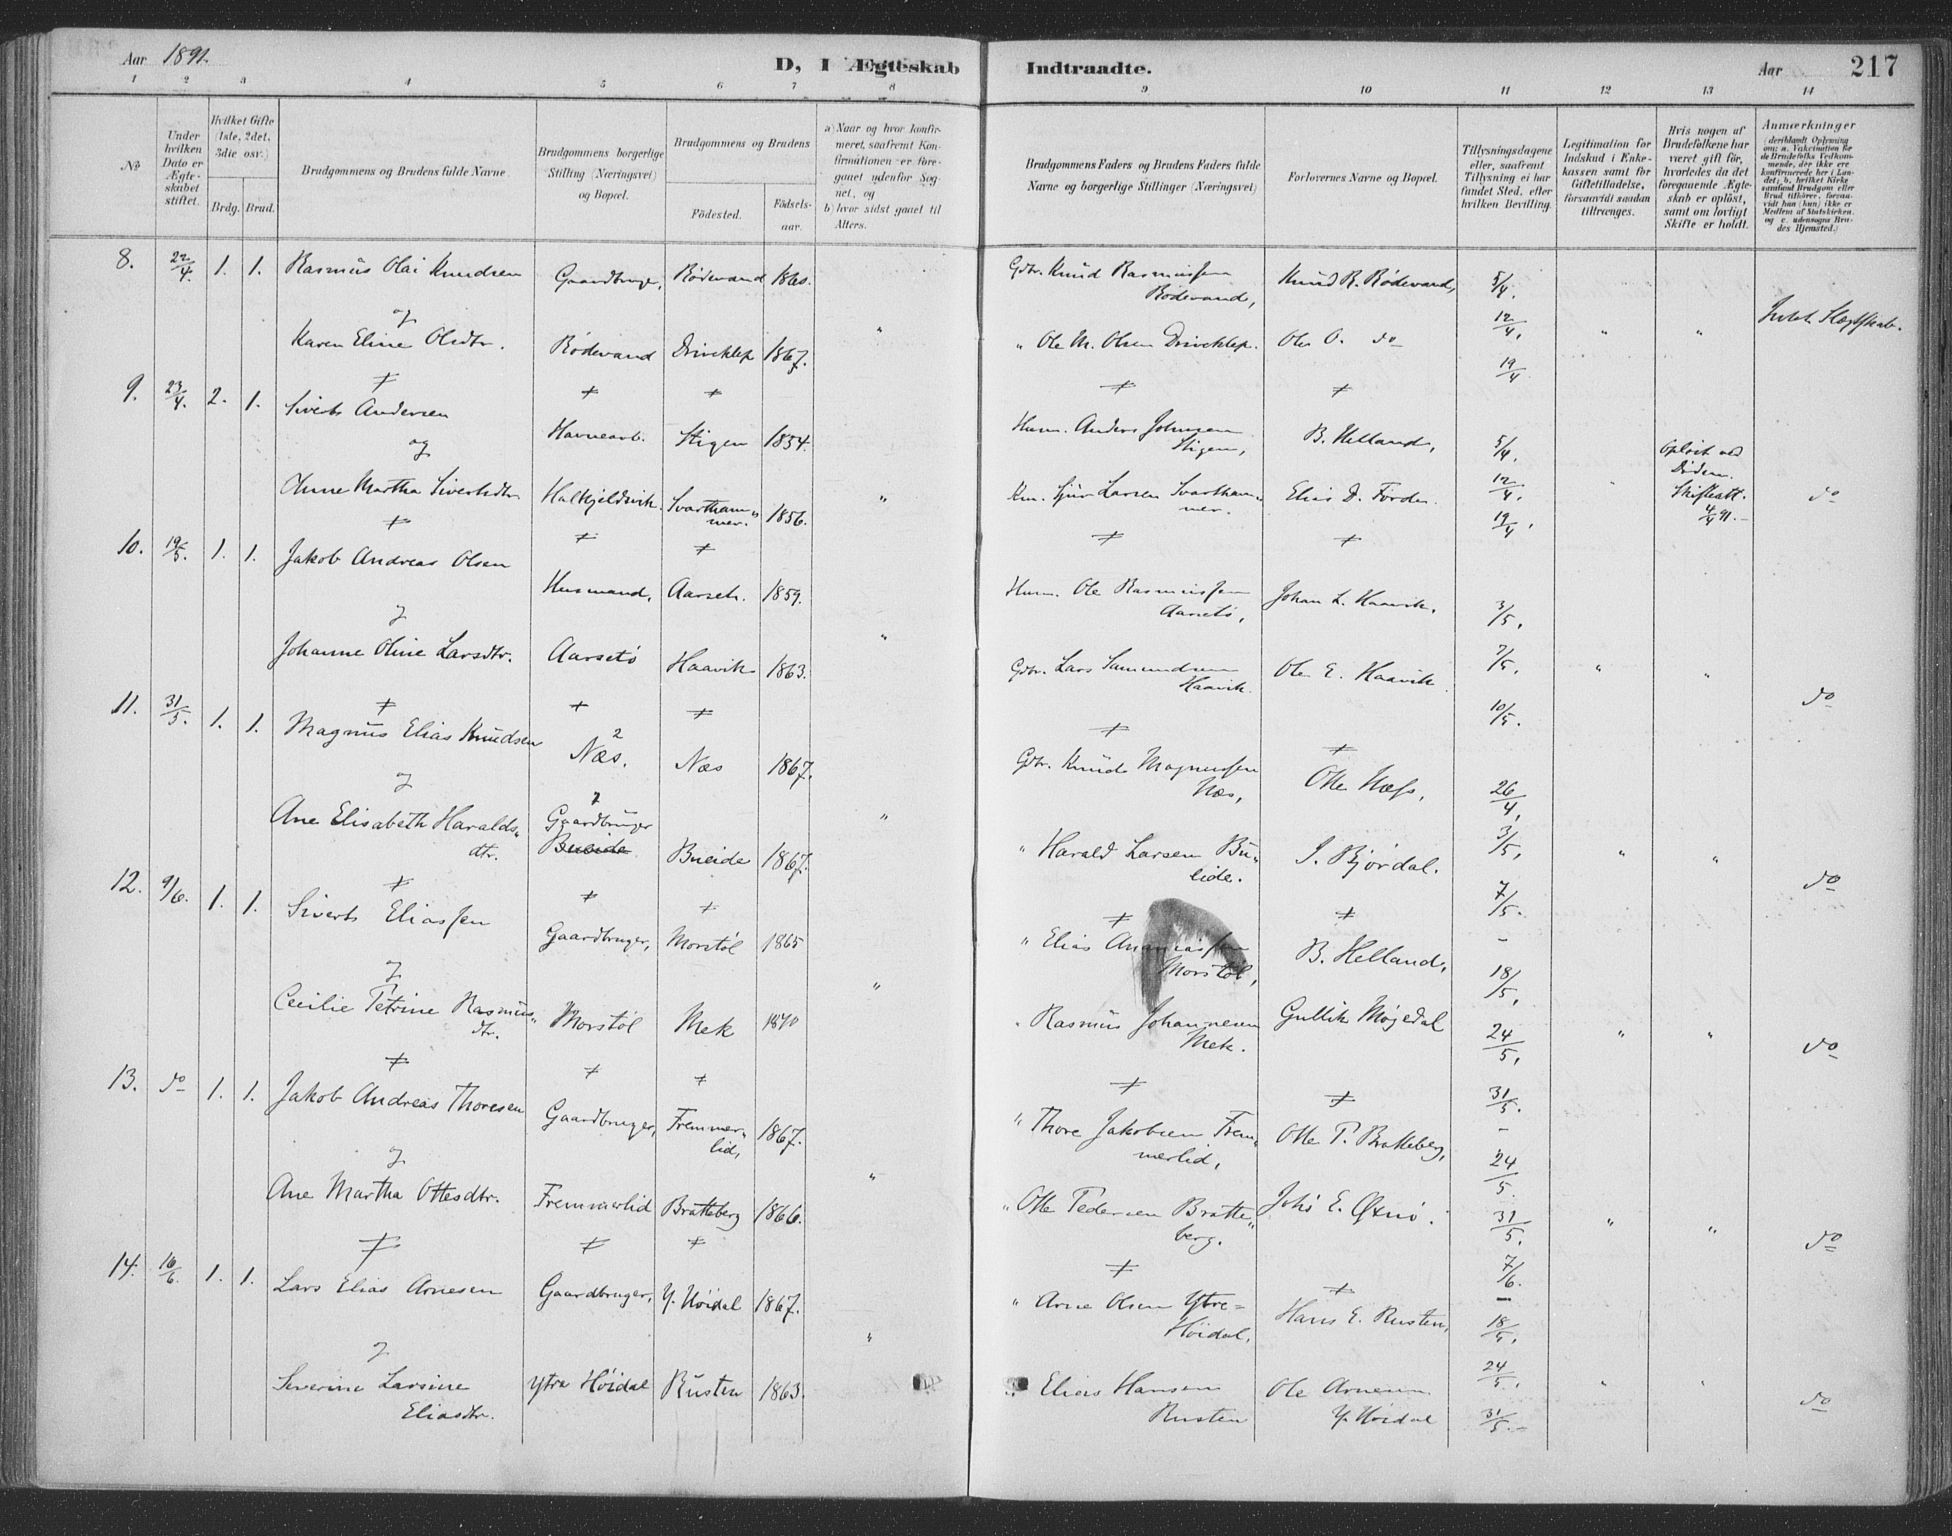 Aar 1891.
D, I Ægteskab Indtraadte.
Aar 217
1 2 3 4 5 6 7 8 9 10 11 12 13 14
No
Under hvilken Dato er Ægteskabet stiftet.
Hvilket Gifte (1ste, 2det, 3die osv.)
Brdg. Brud.
Brudgommens og Brudens fulde Navne.
Brudgommens borgerlige Stilling (Næringsvei) og Bopæl.
Brudgommens og Brudens
Fødested.
Fødselsaar.
a) Naar og hvor konfirmeret, saafremt Konfirmationen er foregaaet udenfor Sognet, og
b) hvor sidst gaaet til Alters.
Brudgommens Faders og Brudens Faders fulde Navne og borgerlige Stillinger (Næringsvei)
Forlovernes Navne og Bopæl.
Tillysningsdagene eller, saafremt Tillysning ei har fundet Sted, efter hvilken Bevilling.
Legitimation for Indskud i Enkekassen samt for Giftetilladelse, forsaavidt saadan tiltrænges.
Hvis nogen af Brudefolkene har været gift før, hvorledes da det foregaaende Ægteskab er opløst, samt om lovligt Skifte er holdt.
Anmærkninger
(deriblandt Oplysning om: a. Vakcination for de Brudefolks Vedkommende, der ikke ere konfirmerede her i Landet; b. hvilket Kirkesamfund Brudgom eller Brud tilhører, forsaavidt han (hun) ikke er Medlem af Statskirken, og c. udensogns Brudes Hjemsted.)
8. 22/4. 1. 1. Rasmus Olai Knudsen Gaardbruger, Rødevand 1860. Gdbr. Knud Rasmussen Rødevand, Knud R. Rødevand, 5/4.
og 12/4, " " Intet Slægtskab.
Karen Eline Olsdtr. Rødevand Driveklep 1867. " " Ole M. Olsen Driveklep. Ole O. do 19/4
9. 23/4. 2. 1. Sivert Andersen Havnearb. Stigen 1854. Husm. Anders Johnsen Stigen, B. Helland, 5/4.
og
Anne Martha Sivertsdtr Halkjeldsvik. Svarthammer. 1856. " Sjur Larsen Svarthammer. Elias D. Førde. 12/4. 19/4, " Opløst ved Døden. Skifteatt. 4/4 91.- do
10. 19/5. 1. 1. Jakob Andreas Olsen Husmand, Aarset. 1859. Husm. Ole Rasmussen Aarsetø, Johan L. Haavik, 3/5.
og
Johanne Oline Larsdtr. Aarsetø Haavik 1863. " Gdbr. Lars Samundsen Haavik. Ole E. Haavik. 7/5. 10/5. " " do
11. 31/5. 1. 1. Magnus Elias Knudsen 2 Næs. Næs 1867. Gdbr. Knud Magnussen Næs, Otte Næss, 26/4,
og
Ane Elisabeth Haraldsdtr. 1 Gaardbruger Bueide Bueide 1867. " " Harald Larsen Bueide. J. Bjørdal. 3/5, 7/5. " " do
12. 9/6. 1. 1. Sivert Eliassen Gaardbruger, Morstøl 1865 " Elias Ananiassen Morstøl, B. Helland, 18/5,
og
Cecilie Petrine Rasmusdtr. Morstøl Mek 1870 " " Rasmus Johannesen Mek. Gullik Møgedal 24/5, 31/5. " " do
13. do 1. 1. Jakob Andreas Thoresen Gaardbruger, Fremmerlid, 1867. " Thore Jakobsen Fremmerlid, Otte P. Bratteberg, 24/5.
og
Ane Martha Ottesdtr. Fremmerlid Bratteberg 1866. " " Otte Pedersen Bratteberg. Johs E. Øxnø. 31/5. 7/6. " " do
14. 16/6. 1. 1. Lars Elias Arnesen Gaardbruger, Y. Høidal 1867. " Arne Olsen Ytre-Høidal, Hans E. Rusten, 18/5,
og
Severine Larsine Eliasdtr. Ytre Høidal Rusten 1863. " " Elias Hansen Rusten Ole Arnesen Y. Høidal 24/5. 31/5.- " " do